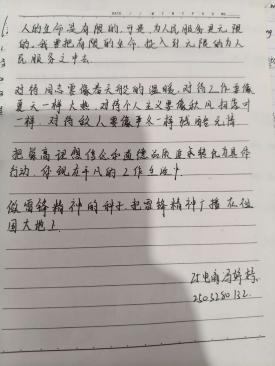 人的生命是有限的，可是，为人民服务是无限
的，我要把有限的生命，投入到无限的为人
民服务之中去
对待同志要像春天般的温暖，对待工作要像
夏天一样火热，对待个人主义要像秋风扫落叶
一样，对待敌人要像严冬一样残酷无情
把崇高理想信念和道德品质追求转化为具体
行动，体现在平凡的工作生活中
做雷锋精神的种子，把雷锋精神广播在祖
国大地上
2503280132